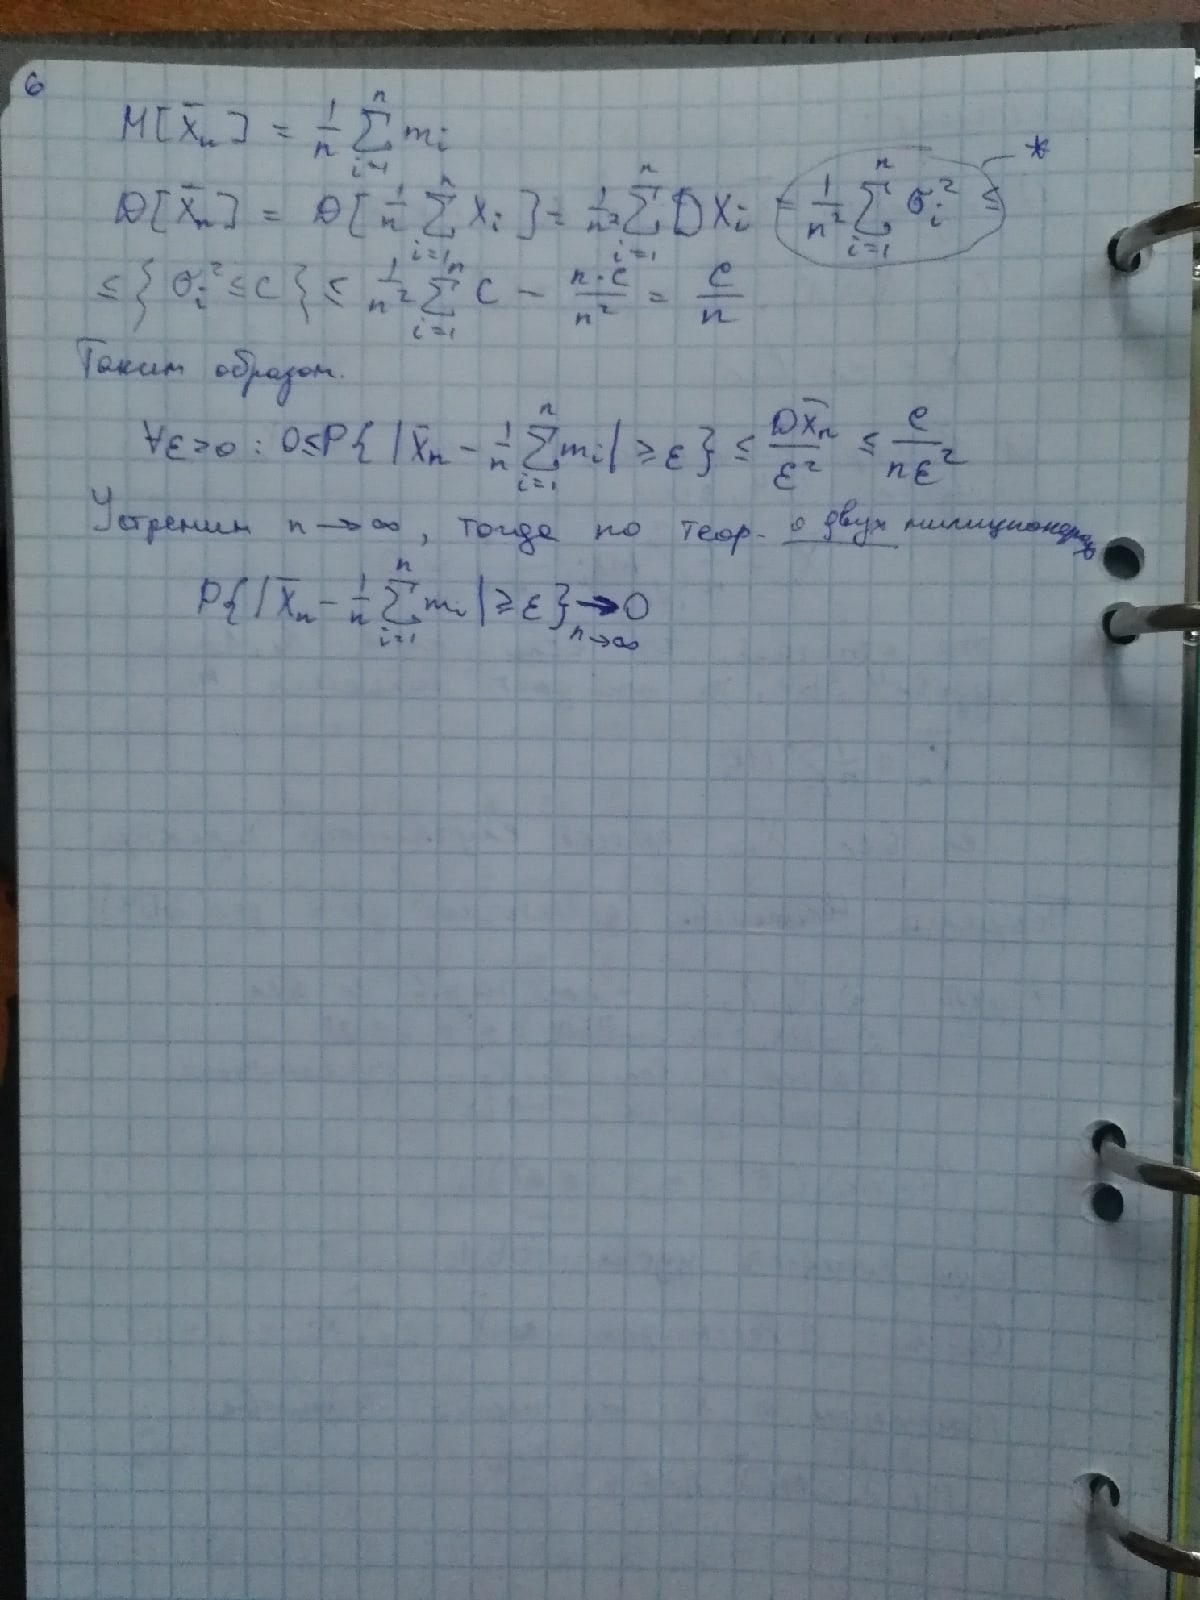 6
M[X̄ₙ] = 1/n ∑ᵢ₌₁ⁿ mᵢ
*
D[X̄ₙ] = D[1/n ∑ᵢ₌₁ⁿ Xᵢ] = 1/n² ∑ᵢ₌₁ⁿ DXᵢ = 1/n² ∑ᵢ₌₁ⁿ σᵢ² ≤
≤ {σᵢ² ≤ C} ≤ 1/n² ∑ᵢ₌₁ⁿ C = n·C/n² = C/n
Таким образом.
∀ε>0 : 0 ≤ P{|X̄ₙ − 1/n ∑ᵢ₌₁ⁿ mᵢ| ≥ ε} ≤ DX̄ₙ/ε² ≤ C/nε²
Устремим n → ∞, тогда по теор. о двух милиционерах
P{|X̄ₙ − 1/n ∑ᵢ₌₁ⁿ mᵢ| ≥ ε} → 0
n→∞